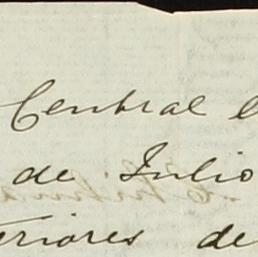 Central
de Julio
eriores de